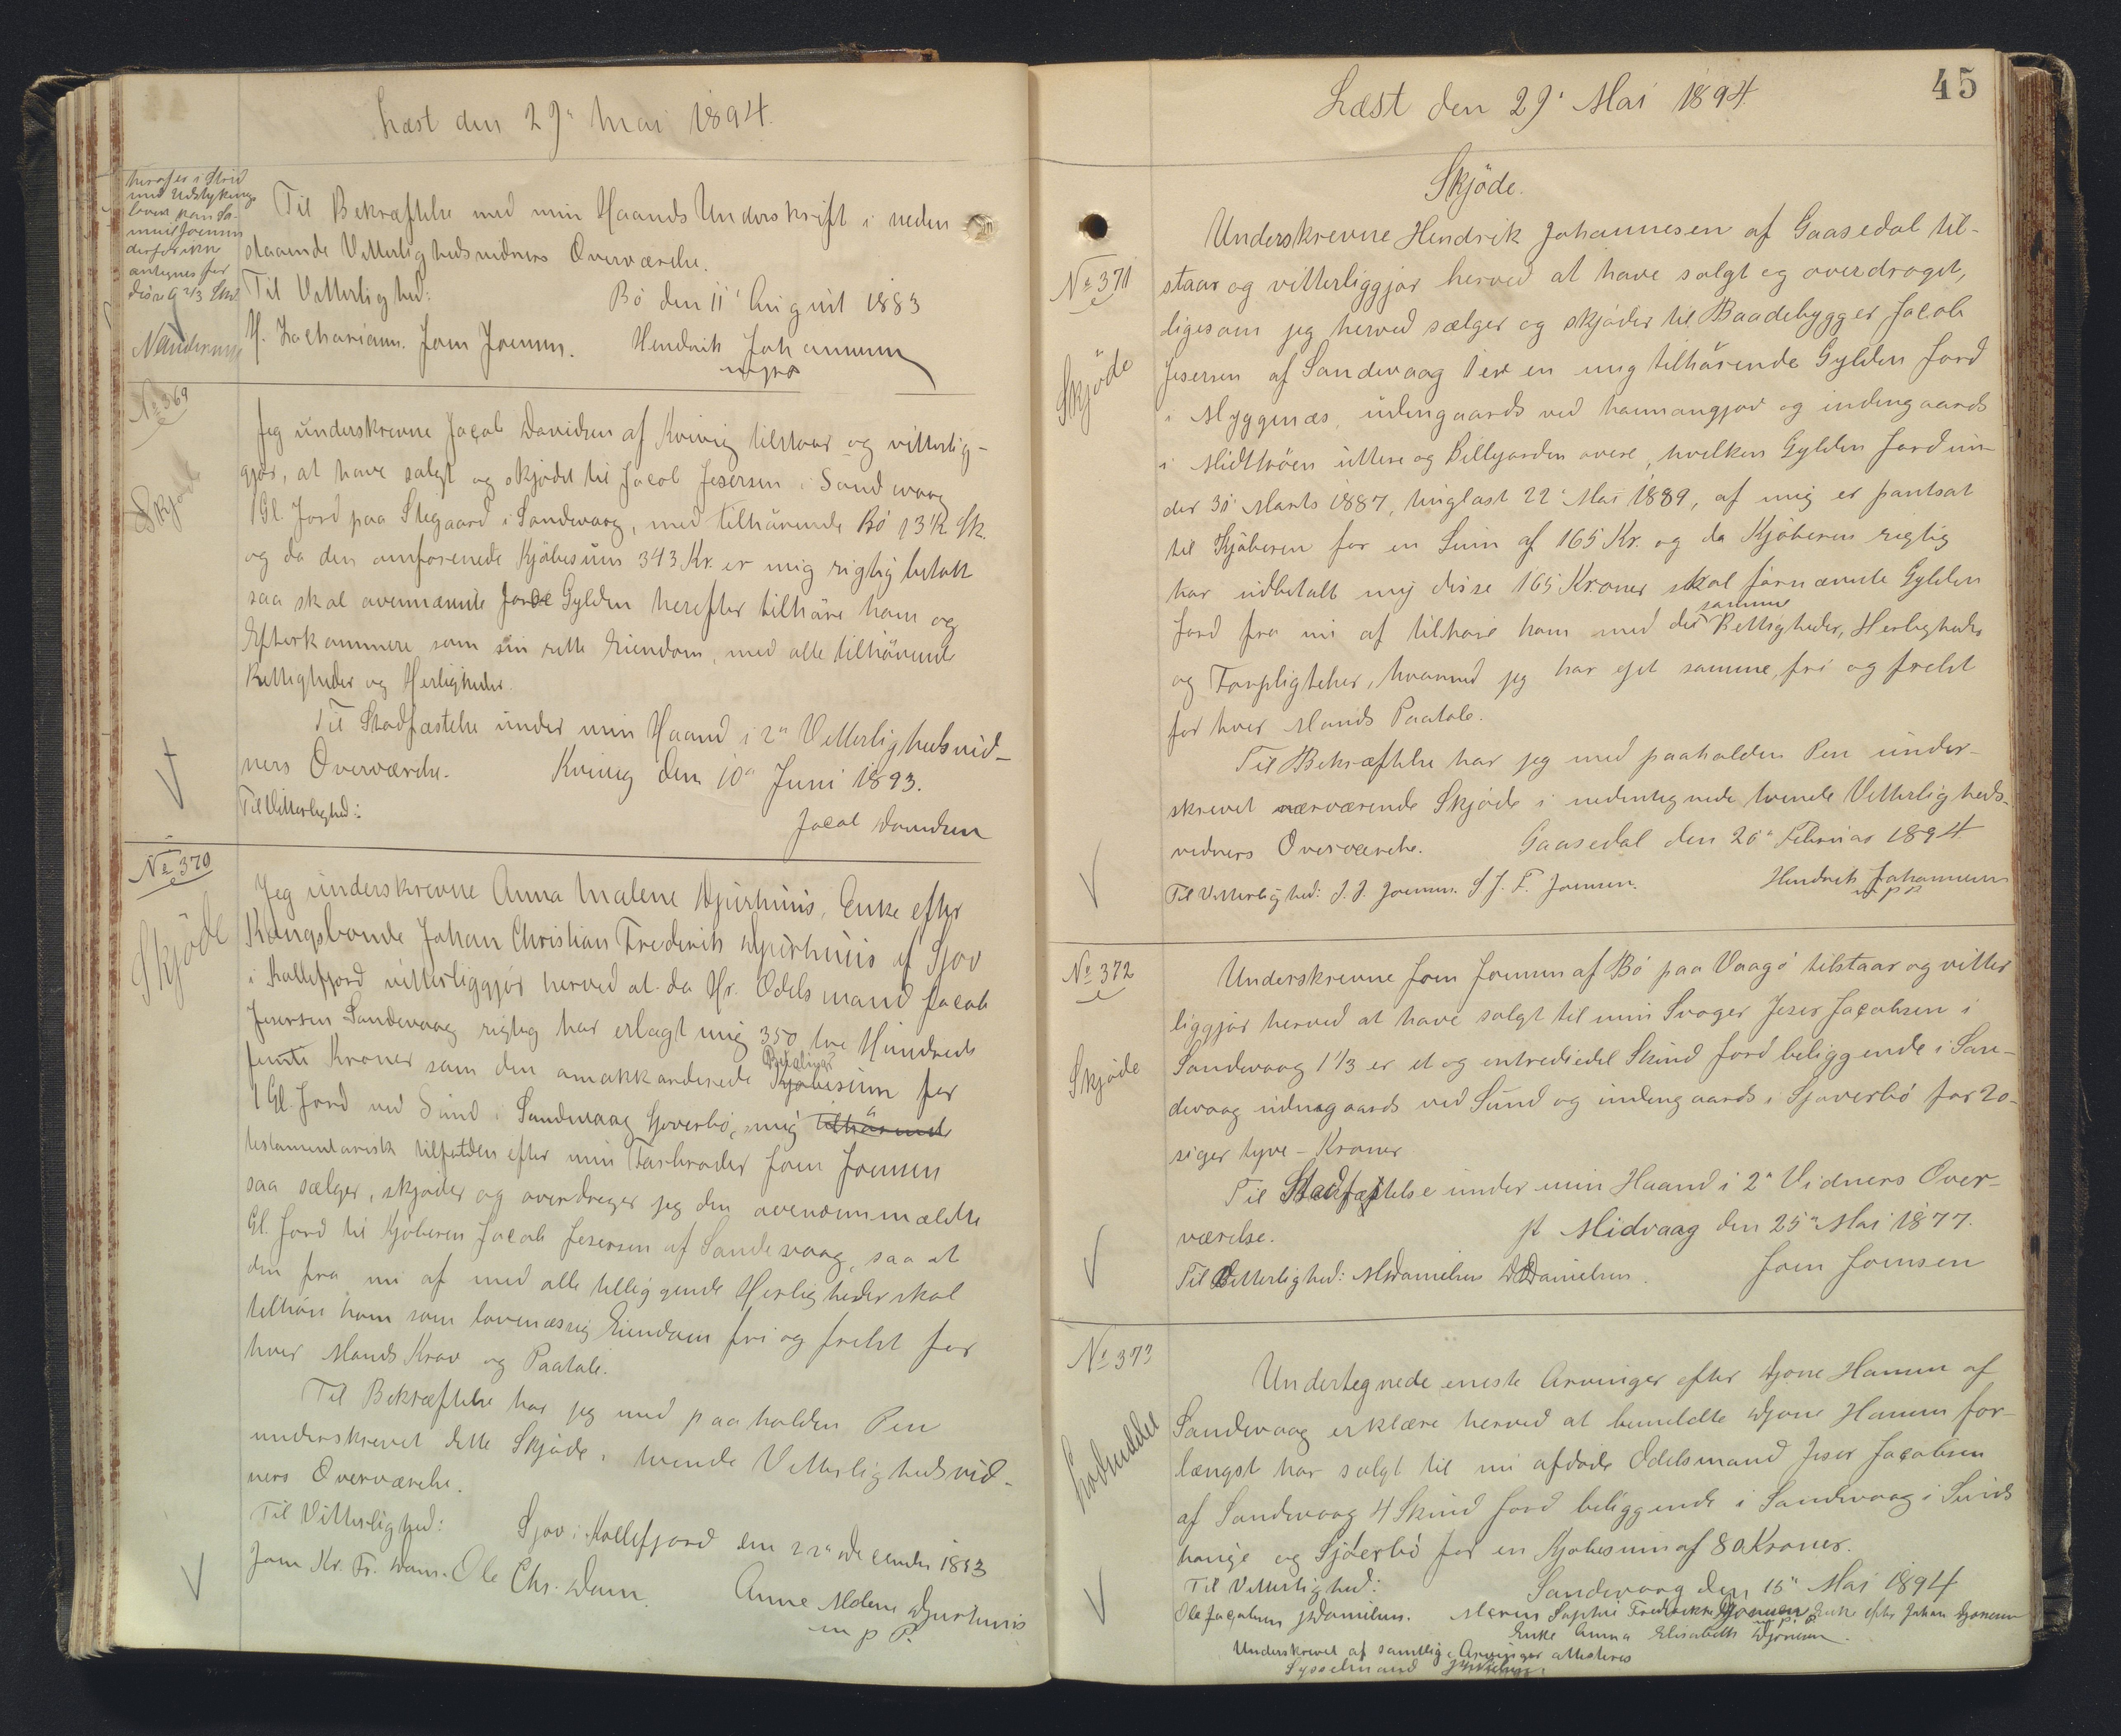 Læst den 29" Mai 1894.
heraf er i Strid
med Udstyknings
loven kan Sa-
muel Joensen
derfor ikke
antegnes for
disse 9 2/3 Skd.
Til Bekræftelse med min Haands Underskrift i neden
staaende Vitterlighedsvidners Overværelse.
Til Vitterlighed: Bö den 11' August 1883
H. Zachariasen. Joen Joensen. Hendrik Johannesen
No 369
Skjöde
Jeg underskrevne Jacob Davidsen af Kvivig tilstaar og vitterlig-
gjör, at have solgt og skjödet til Jacob Jesersen i Sandevaag
1 Gl. Jord paa Stegaard i Sandevaag, med tilhörende Bö 13 1/2 Sk.
og da den omforenede Kjöbesum 343 Kr. er mig rigtig betalt
saa skal ovennævnte Gylden herefter tilhöre ham og
Efterkommere som sin rette Eiendom, med alle tilhörende
Rettigheder og Herligheder.
Til Stadfæstelse under min Haand i 2" Vitterlighedsvid-
ners Overværelse. Kvivig den 10" Juni 1893.
Til Vitterlighed: Jacob Davidsen
No 370
Skjöde
Jeg underskrevne Anna Malene Djurhuus, Enke efter
Kongsbonde Johan Christian Frederik Djurhuus af Sjov
i Kollefjord vitterliggjör herved at da Hr. Odelsmand Jacob
Jesersen Sandevaag rigtig har erlagt mig 350 tre Hundrede
femti Kroner som den omakkorderede Betalings Kjöbesum for
1 Gl. Jord ved Sund i Sandevaag Sjoverbö, mig tilhörende
testamentarisk tilfalden efter min Farbroder Joen Joensen
saa sælger, skjöder og overdrager jeg den ovenommeldte
Gl. Jord til Kjöberen Jacob Jesersen af Sandevaag, saa at
den fra nu af med alle tilliggende Herligheder skal
tilhöre ham som lovmæssig Eiendom fri og frelst for
hver Mands Krav og Paatale.
Til Bekræftelse har jeg med paaholden Pen
underskrevet dette Skjöde i tvende Vitterlighedsvid-
ners Overværelse.
Til Vitterlighed: Sjov i Kollefjord den 22" December 1893
Joen Kr. Fr. Dam. Ole Chr. Dam. Anne Malene Djurhuus
m p P.
Læst den 29' Mai 1894.
45
Skjöde.
No 371
Skjöde
Underskrevne Hendrik Johannesen af Gaasedal til-
staar og vitterliggjör herved at have solgt og overdraget,
ligesom jeg herved sælger og skjöder til Baadebygger Jacob
Jesersen af Sandevaag 1 en mig tilhörende Gylden Jord
i Myggenæs, udengaards ved hamangjov og indengaards
i Midttröen uttere og Billyarden overe, hvilken Gylden Jord un-
der 30' Marts 1887, tinglæst 22' Mai 1889, af mig er pantsat
til Kjöberen for en Sum af 165 Kr. og da Kjöberen rigtig
har udbetalt mig disse 165 Kroner skal förnævnte Gylden
Jord fra nu af tilhöre ham med de samme Rettigheder, Herligheder
og Forpligtelser, hvormed jeg har ejet samme, fri og frelst
for hver Mands Paatale.
Til Bekræftelse har jeg med paaholden Pen under-
skrevet nærværende Skjöde i nedentegnede tvende Vitterligheds-
vidners Overværelse. Gaasedal den 20" Februar 1894
Til Vitterlighed: J. J. Joensen. S. J. F. Joensen. Hendrik Johannesen
m p P
No 372
Skjöde
Underskrevne Joen Joensen af Bö paa Vaagö tilstaar og vitter
liggjör herved at have solgt til min Svoger Jeser Jacobsen i
Sandevaag 1 1/3 er et og entrediedel Skind Jord beliggende i San-
devaag udengaards ved Sund og indengaards i Sjoverbö for 20-
siger tyve - Kroner
Til Stadfæstelse under min Haand i 2" Vidners Over-
værelse. pt Midvaag den 25" Mai 1877.
Til Vitterlighed: M Danielsen D Danielsen. Joen Joensen
No 373
Undertegnede eneste Arvinger efter Djone Hansen af
Sandevaag erklære herved at bemeldte Djone Hansen for-
længst har solgt til nu afdöde Odelsmand Jeser Jacobsen
af Sandevaag 4 Skind Jord beliggende i Sandevaag i Sunds
hauge og Sjoverbö for en Kjöbesum af 80 Kroner.
Til Vitterlighed: Sandevaag den 15" Mai 1894
Ole Jacobsen J Danielsen. Maren Sophie Fredrikke Djonesen Enke efter Johan Djonesen
Enke Anna Elisabeth Djonesen.
Underskrevet af samtlige Arvinger attesteres
Sysselmand